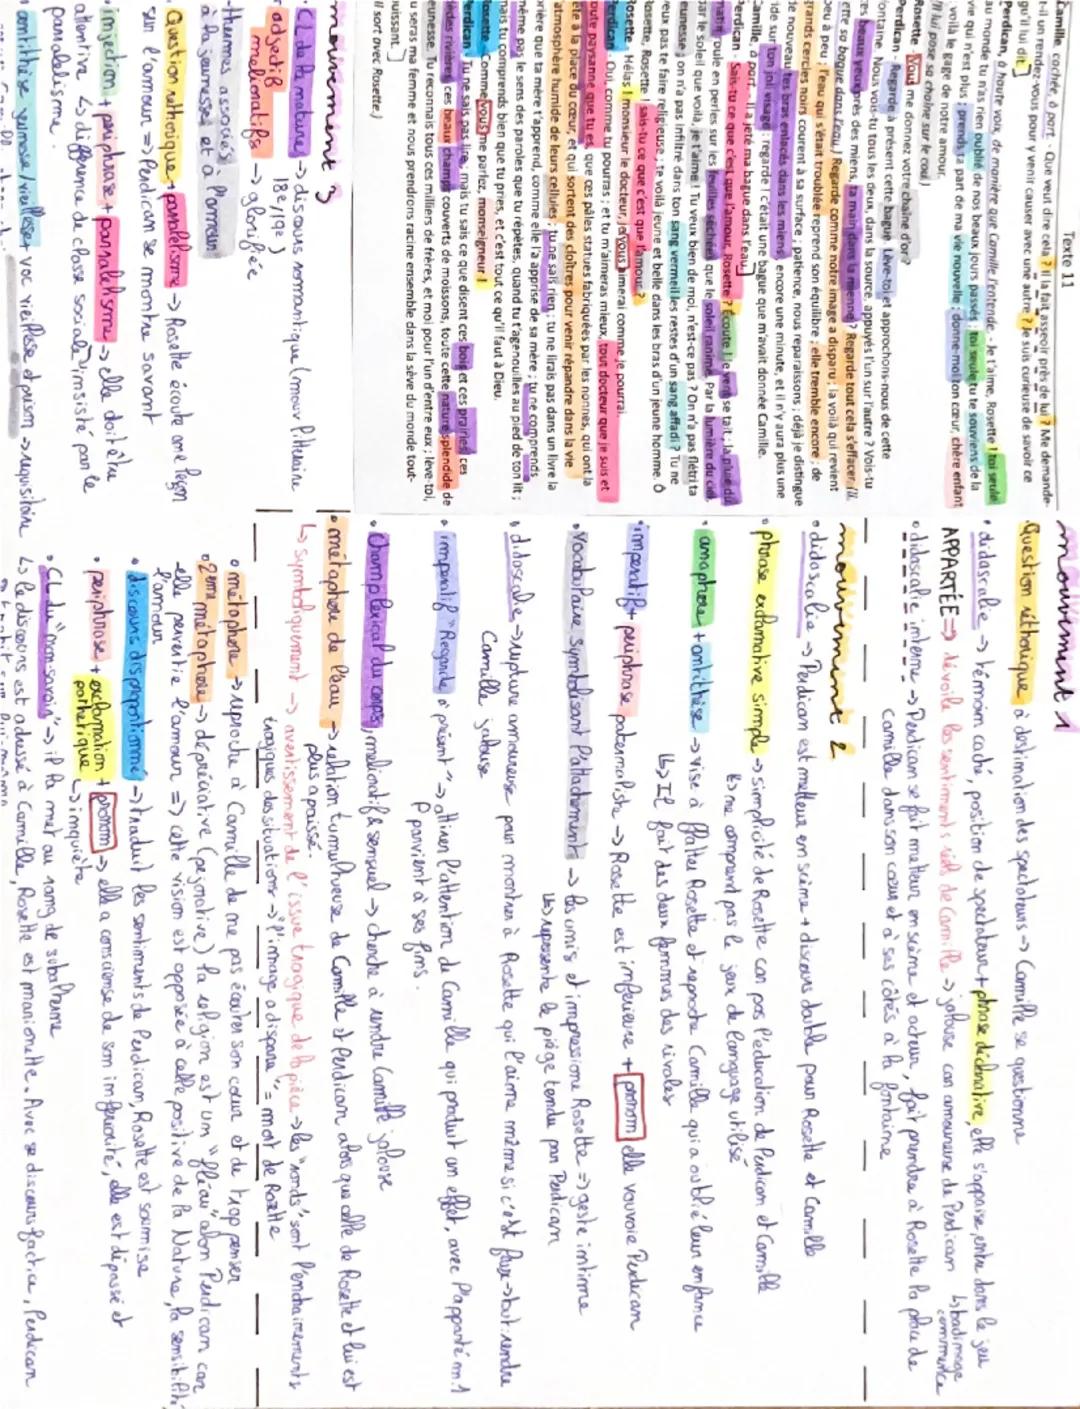 Texte 11
Camille, cachée, à part. - Que veut dire cela ? Il la fait asseoir près de lui ? Me demande-
t-il un rendez-vous pour y venir causer avec une autre ? Je suis curieuse de savoir ce
qu'il lui dit.
Perdican, à haute voix, de manière que Camille l'entende. - Je t'aime, Rosette ! toi seule
au monde tu n'as rien oublié de nos beaux jours passés ; toi seule tu te souviens de la
vie qui n'est plus ; prends ta part de ma vie nouvelle ; donne-moi ton cœur, chère enfant
; voilà le gage de notre amour.
(Il lui pose sa chaîne sur le cou.)
Rosette - Vous me donnez votre chaîne d'or ?
Perdican - Regarde à présent cette bague. Lève-toi et approchons-nous de cette
fontaine. Nous vois-tu tous les deux, dans la source, appuyés l'un sur l'autre ? Vois-tu
tes beaux yeux près des miens, ta main dans la mienne ? Regarde tout cela s'effacer. (Il
jette sa bague dans l'eau.) Regarde comme notre image a disparu ; la voilà qui revient
peu à peu ; l'eau qui s'était troublée reprend son équilibre ; elle tremble encore ; de
grands cercles noirs courent à sa surface ; patience, nous reparaissons ; déjà je distingue
de nouveau tes bras enlacés dans les miens ; encore une minute, et il n'y aura plus une
ride sur ton joli visage ; regarde ! c'était une bague que m'avait donnée Camille.
Camille, à part. - Il a jeté ma bague dans l'eau.
Perdican - Sais-tu ce que c'est que l'amour, Rosette ? Écoute ! le vent se tait ; la pluie du
matin roule en perles sur les feuilles séchées que le soleil ranime. Par la lumière du ciel,
par le soleil que voilà, je t'aime ! Tu veux bien de moi, n'est-ce pas ? On n'a pas flétri ta
jeunesse ; on n'a pas infiltré dans ton sang vermeil les restes d'un sang affadi ? Tu ne
veux pas te faire religieuse ; te voilà jeune et belle dans les bras d'un jeune homme. Ô
Rosette, Rosette ! sais-tu ce que c'est que l'amour ?
Rosette - Hélas ! monsieur le docteur, je vous aimerai comme je pourrai.
Perdican - Oui, comme tu pourras ; et tu m'aimeras mieux, tout docteur que je suis et
toute paysanne que tu es, que ces pâles statues fabriquées par les nonnes, qui ont la
tête à la place du cœur, et qui sortent des cloîtres pour venir répandre dans la vie
l'atmosphère humide de leurs cellules ; tu ne sais rien ; tu ne lirais pas dans un livre la
prière que ta mère t'apprend, comme elle l'a apprise de sa mère ; tu ne comprends
même pas le sens des paroles que tu répètes, quand tu t'agenouilles au pied de ton lit ;
mais tu comprends bien que tu pries, et c'est tout ce qu'il faut à Dieu.
Rosette - Comme vous me parlez, monseigneur !
Perdican - Tu ne sais pas lire ; mais tu sais ce que disent ces bois et ces prairies, ces
tièdes rivières, ces beaux champs couverts de moissons, toute cette nature splendide de
jeunesse. Tu reconnais tous ces milliers de frères, et moi pour l'un d'entre eux ; lève-toi,
tu seras ma femme et nous prendrons racine ensemble dans la sève du monde tout-
puissant.
(Il sort avec Rosette.)
mouvement 3
• CL de la nature → discours romantique (mouv littéraire
18e/19e)
adjectif mélioratifs → glorifiée
- thermes associés à la jeunesse et à l'amour
• Question réthorique + parallélisme → Rosette écoute une leçon
sur l'amour ⇒ Perdican se montre savant
• injection + périphrase + parallélisme → elle doit être
attentive ↳ différence de classe sociale insisté par le
parallélisme.
• antithèse jeunesse/vieillesse
mouvement 1
Question réthorique à destination des spectateurs → Camille se questionne
• didascalie → témoin caché, position de spectateur + phrase déclarative, elle s'apaise, entre dans le jeu
↳ badinage commence
APPARTÉE ⇒ dévoile les sentiments réels de Camille → jalouse car amoureuse de Perdican
• didascalie interne → Perdican se fait metteur en scène et acteur, fait prendre à Rosette la place de
Camille dans son cœur et à ses côtés à la fontaine
mouvement 2
• didascalie → Perdican est metteur en scène + discours double pour Rosette et Camille
• phrase exclamative simple → simplicité de Rosette car pas l'éducation de Perdican et Camille
↳ ne comprend pas le jeux de langage utilisé
• anaphore + antithèse → vise à flatter Rosette et reproche Camille qui a oublié leur enfance
↳ Il fait des deux femmes des rivales
• impératif + périphrase paternaliste → Rosette est inférieure + pronom elle vouvoie Perdican
• vocabulaire symbolisant l'attachement → les unis et impressione Rosette ⇒ geste intime
↳ représente le piège tendu par Perdican
• didascalie → rupture amoureuse pour montrer à Rosette qui l'aime même si c'est faux → but : rendre
Camille jalouse
• impératif "Regarde à présent" → attien l'attention de Camille qui produit un effet, avec l'apparté m.1
P parvient à ses fins.
• champ lexical du corps, mélioratif & sensuel → cherche à rendre Camille jalouse
• métaphore de l'eau → relation tumultueuse de Camille et Perdican alors que celle de Rosette et lui est
plus apaisée.
↳ symboliquement → avertissement de l'issue tragique de la pièce → les "ronds" sont l'enchainements
tragiques des situations → "l'image a disparu" = mort de Rosette
• métaphore → reproche à Camille de ne pas écouter son cœur et de trop penser
• 2eme métaphore → dépréciative (péjorative) la religion est un "fléau" selon Perdican car
elle pervertie l'amour ⇒ cette vision est opposée à celle positive de la Nature, la sensibilité,
l'amour
• discours disproportionné → traduit les sentiments de Perdican, Rosette est soumise
• périphrase + exclamation pathétique + pronom → elle a conscience de son infériorité, elle est dépassé et
↳ inquiète
• CL du "non-savoir" → il la met au rang de subalterne
↳ le discours est adressé à Camille, Rosette est marionette. Avec se discours factice, Perdican